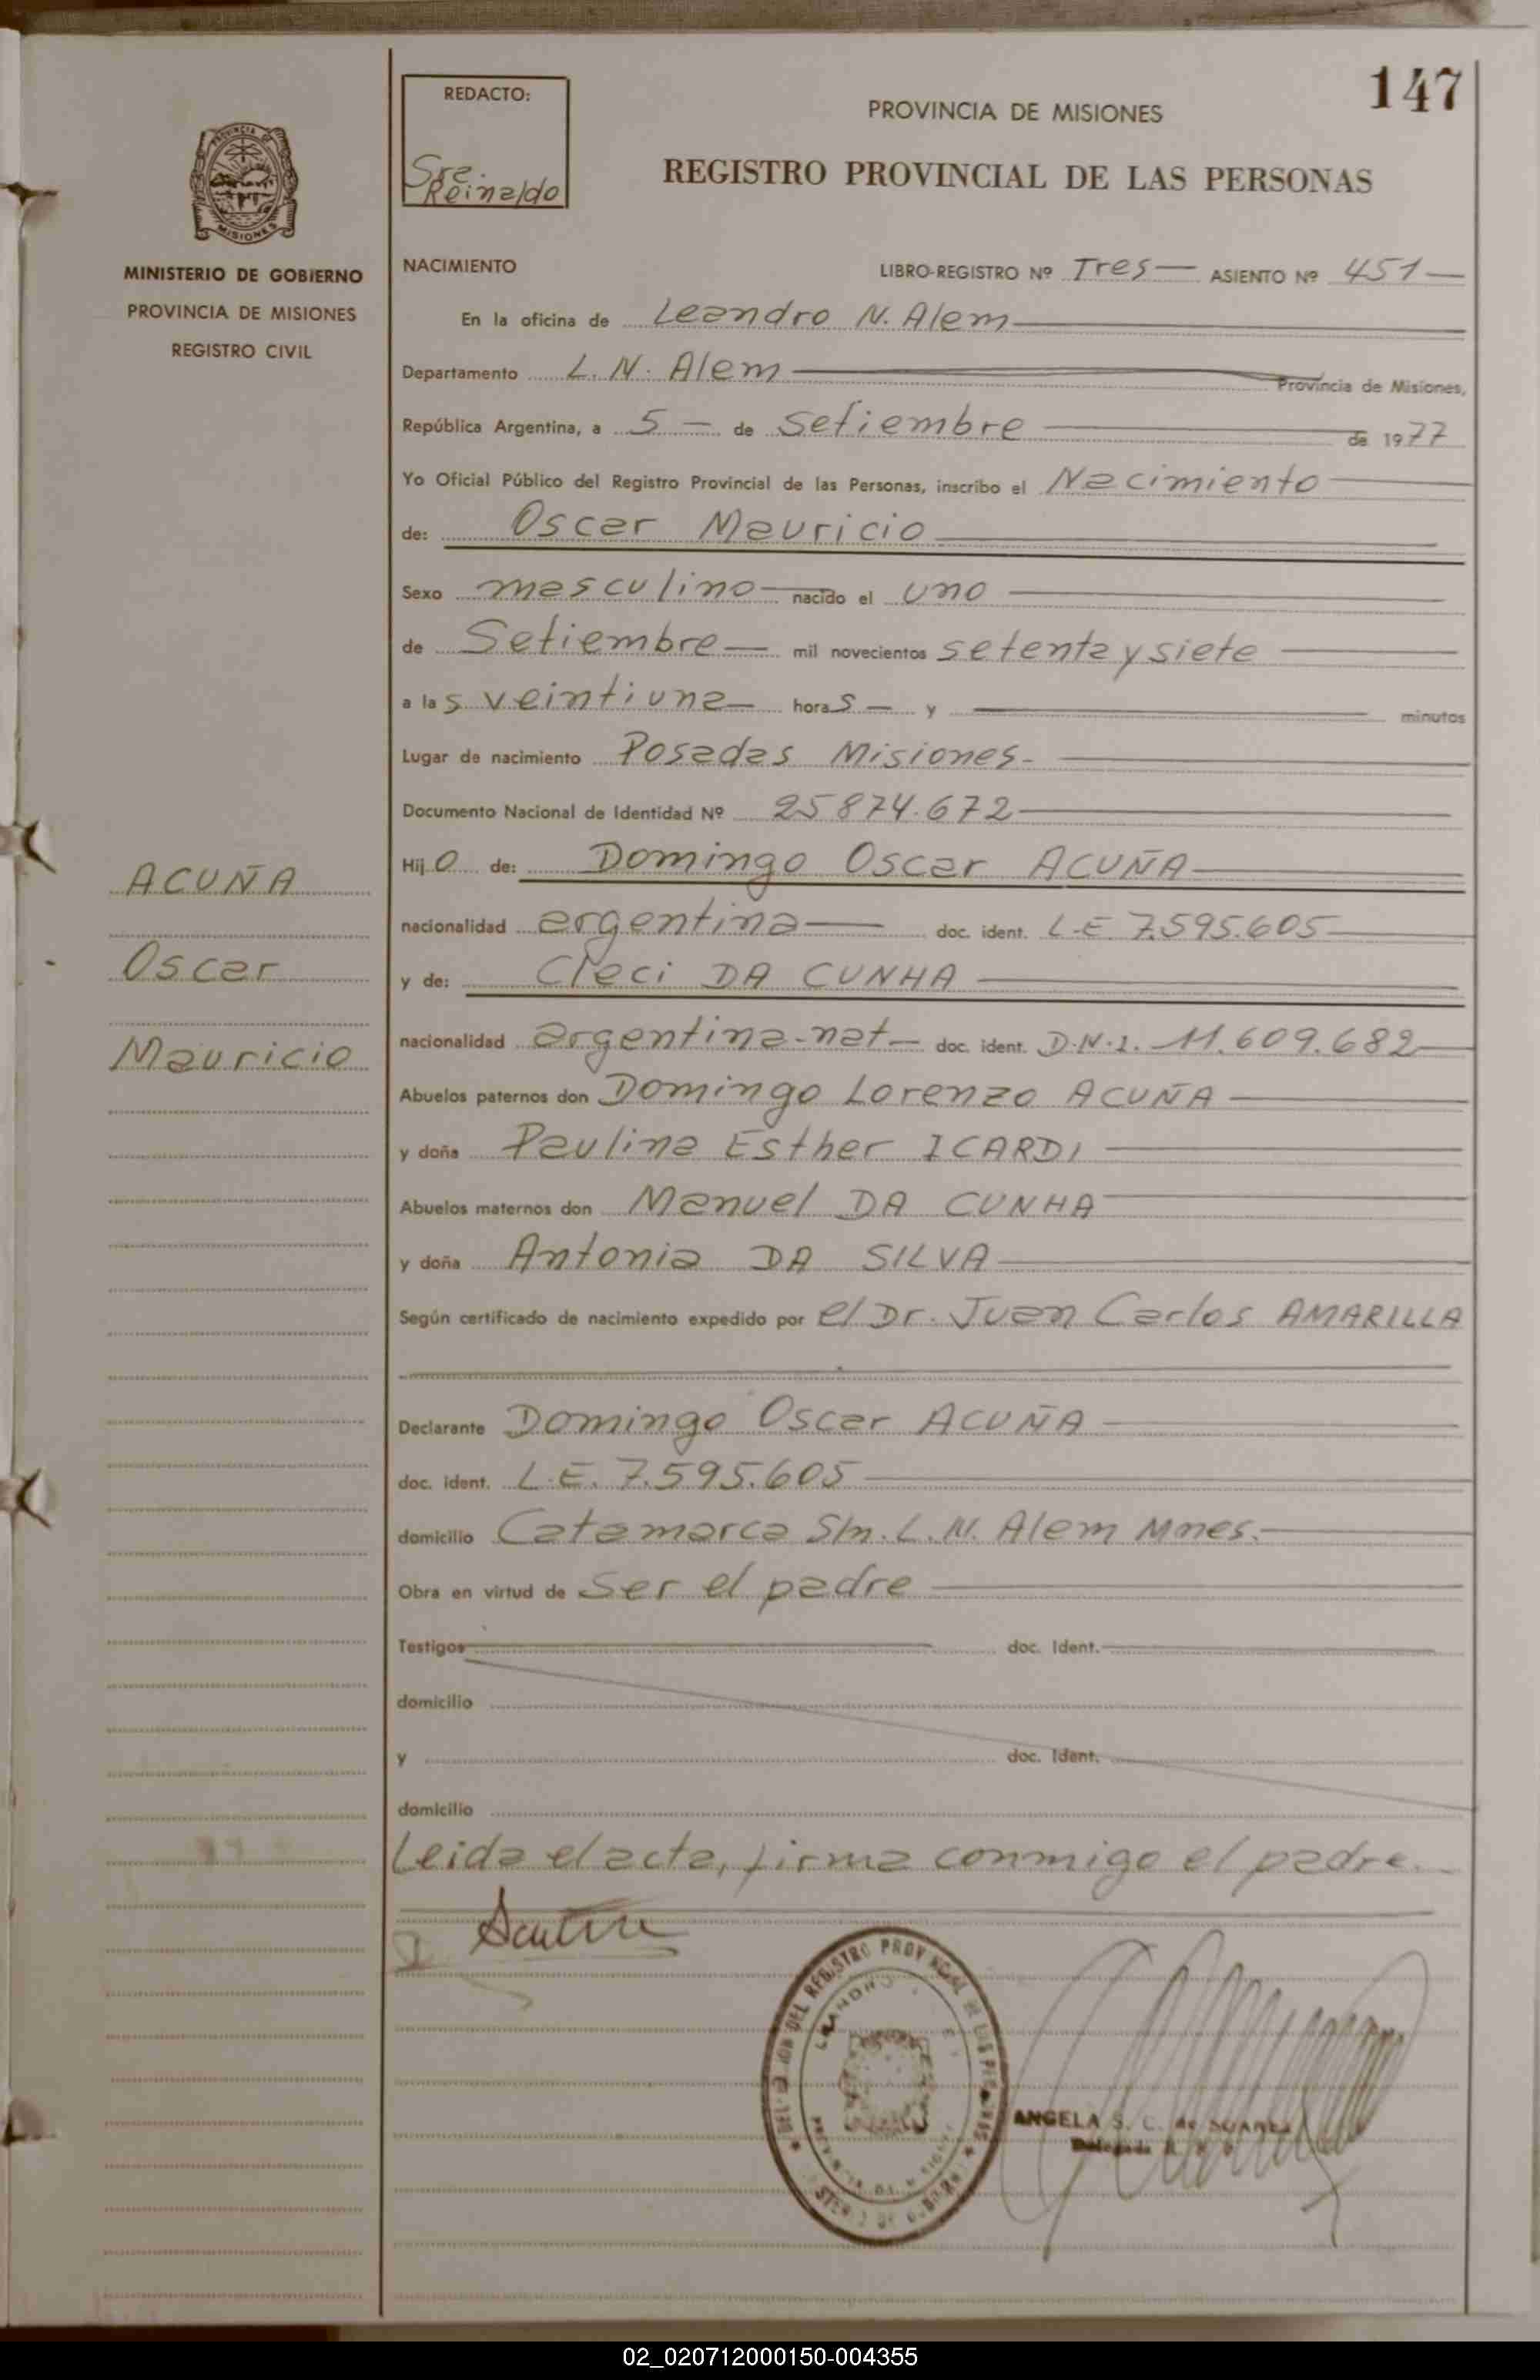 147
REDACTO:
Sre.
Reinaldo
PROVINCIA DE MISIONES
REGISTRO PROVINCIAL DE LAS PERSONAS
MISIONES
MINISTERIO DE GOBIERNO
PROVINCIA DE MISIONES
REGISTRO CIVIL
NACIMIENTO
LIBRO-REGISTRO Nº Tres — ASIENTO Nº 451 —
En la oficina de Leandro N. Alem
Departamento L. N. Alem Provincia de Misiones,
República Argentina, a 5 — de Setiembre de 1977
Yo Oficial Público del Registro Provincial de las Personas, inscribo el Nacimiento
de: Oscar Mauricio
Sexo masculino — nacido el uno
de Setiembre — mil novecientos setenta y siete
a las veintiuna — horas — y — minutos
Lugar de nacimiento Posadas Misiones.
Documento Nacional de Identidad Nº 25874.672
Hijo de: Domingo Oscar ACUÑA
nacionalidad argentina — doc. ident. L.E. 7.595.605
y de: Cleci DA CUNHA
nacionalidad argentina-nat — doc. ident. D.N.I. 11.609.682
Abuelos paternos don Domingo Lorenzo ACUÑA
y doña Paulina Esther ICARDI
Abuelos maternos don Manuel DA CUNHA
y doña Antonia DA SILVA
Según certificado de nacimiento expedido por el Dr. Juan Carlos AMARILLA
Declarante Domingo Oscar ACUÑA
doc. ident. L.E. 7.595.605
domicilio Catamarca S/n. L.N. Alem Mnes.
Obra en virtud de Ser el padre
Testigos doc. Ident.
domicilio
y doc. Ident.
domicilio
Leida el acta, firma conmigo el padre.
ACUÑA
Oscar
Mauricio
DEL REGISTRO PROVINCIAL DE LAS PERSONAS
LEANDRO
ANGELA S. C. de SUAREZ
02_020712000150-004355